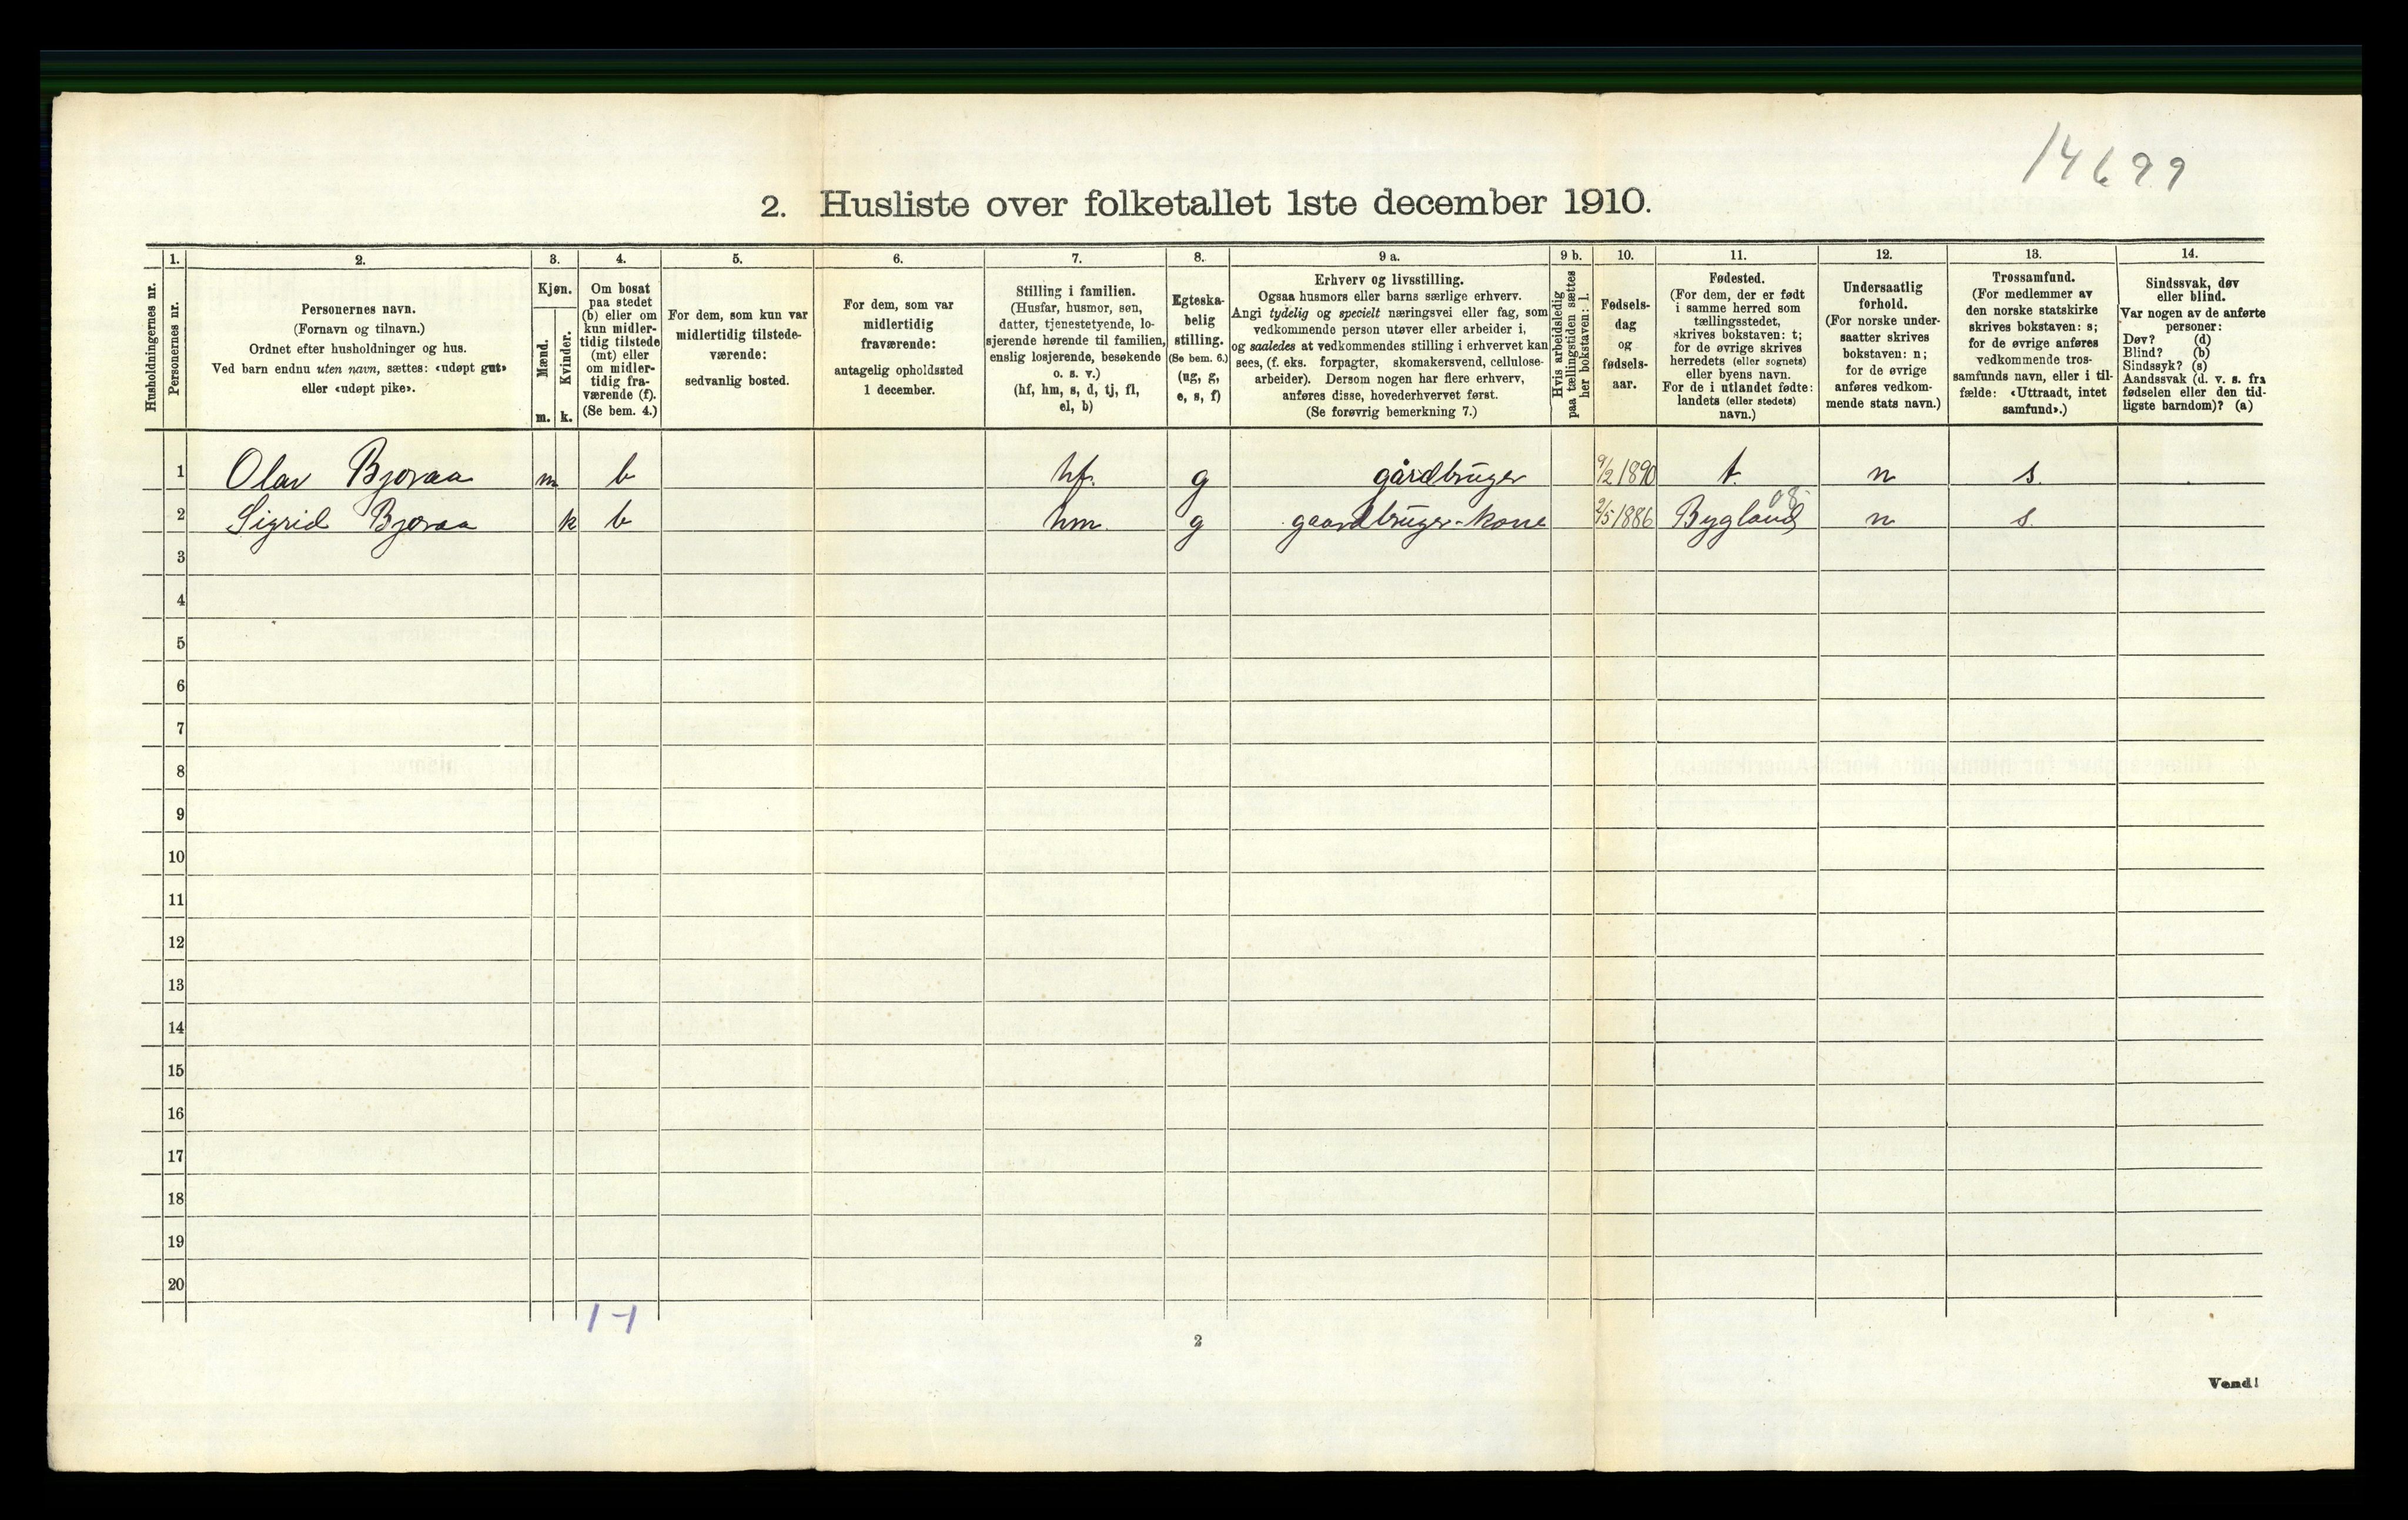 14699
2. Husliste over folketallet 1ste december 1910.
Husholdningernes nr.
1.
Personernes nr.
2.
Personernes navn.
(Fornavn og tilnavn.)
Ordnet efter husholdninger og hus.
Ved barn endnu uten navn, sættes: «udøpt gut»
eller «udøpt pike».
3.
Kjøn.
Mænd.
Kvinder.
m.
k.
4.
Om bosat
paa stedet
(b) eller om
kun midler-
tidig tilstede
(mt) eller
om midler-
tidig fra-
værende (f).
(Se bem. 4.)
5.
For dem, som kun var
midlertidig tilstede-
værende:
sedvanlig bosted.
6.
For dem, som var
midlertidig
fraværende:
antagelig opholdssted
1 december.
7.
Stilling i familien.
(Husfar, husmor, søn,
datter, tjenestetyende, lo-
sjerende hørende til familien,
enslig losjerende, besøkende
o. s. v.)
(hf, hm, s, d, tj, fl,
el, b)
8.
Egteska-
belig
stilling.
(Se bem. 6.)
(ug, g,
e, s, f)
9 a.
Erhverv og livsstilling.
Ogsaa husmors eller barns særlige erhverv.
Angi tydelig og specielt næringsvei eller fag, som
vedkommende person utøver eller arbeider i,
og saaledes at vedkommendes stilling i erhvervet kan
sees, (f. eks. forpagter, skomakersvend, cellulose-
arbeider). Dersom nogen har flere erhverv,
anføres disse, hovederhvervet først.
(Se forøvrig bemerkning 7.)
9 b.
Hvis arbeidsledig
paa tællingstiden sættes
her bokstaven: l.
10.
Fødsels-
dag
og
fødsels-
aar.
11.
Fødested.
(For dem, der er født
i samme herred som
tællingsstedet,
skrives bokstaven: t;
for de øvrige skrives
herredets (eller sognets)
eller byens navn.
For de i utlandet fødte:
landets (eller stedets)
navn.)
12.
Undersaatlig
forhold.
(For norske under-
saatter skrives
bokstaven: n;
for de øvrige
anføres vedkom-
mende stats navn.)
13.
Trossamfund.
(For medlemmer av
den norske statskirke
skrives bokstaven: s;
for de øvrige anføres
vedkommende tros-
samfunds navn, eller i til-
fælde: «Uttraadt, intet
samfund».)
14.
Sindssvak, døv
eller blind.
Var nogen av de anførte
personer:
Døv? (d)
Blind? (b)
Sindssyk? (s)
Aandssvak (d. v. s. fra
fødselen eller den tid-
ligste barndom)? (a)
1 Olav Bjoraa m b hf. g gårdbruger 9/2 1890 t. n s.
08
2 Sigrid Bjoraa k b hm. g gaardbruger-kone 2/5 1886 Bygland n s.
3
4
5
6
7
8
9
10
11
12
13
14
15
16
17
18
19
20
1-1
2
Vend!